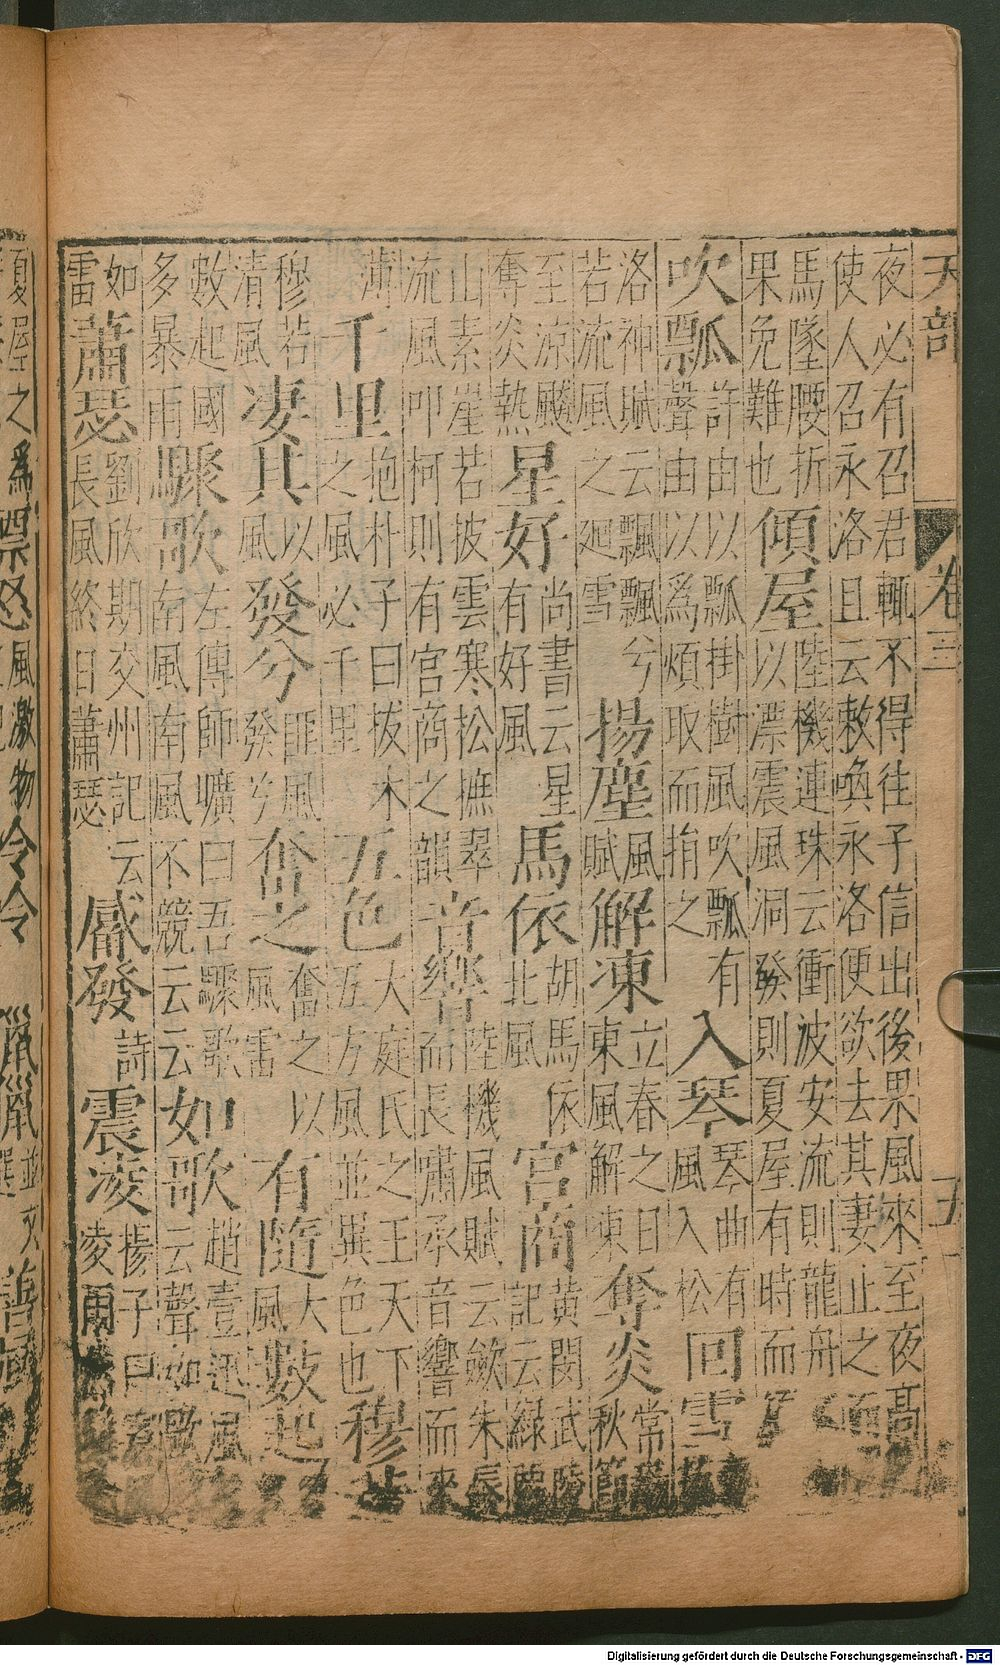 天部 卷三 五
夜必有召君輒不得往子信出後果風來至夜高
使人召永洛且云敕喚永洛便欲去其妻止之
馬墜腰折
果免難也
傾屋
陸機連珠云衝波安流則龍舟
以漂震風洞發則夏屋有時而
吹瓢
許由以瓢掛樹風吹瓢有
聲由以爲煩取而捐之
入琴
琴曲有
風入松
回雪
洛神賦云飄飄兮
若流風之廻雪
揚塵
風
賦
解凍
立春之日
東風解凍
奪炎
常
秋節
至涼飈
奪炎熱
星好
尚書云星
有好風
馬依
胡馬依
北風
宮商
黃閔武陵
記云綠
山素崖若披雲寒松撫翠
流風叩柯則有宮商之韻
音響
陸機風賦云斂朱脣
而長嘯承音響而來
薄
千里
抱朴子曰拔木
之風必千里
五色
大庭氏之王天下
五方風並異色也
穆
穆若
清風
淒其
以
風
發兮
匪風
發兮
奮之
奮之以
風雷
有隨
大
風
數起
數起國
多暴雨
驟歌
左傳師曠曰吾驟歌
南風南風不競云云
如歌
趙壹迅風
云聲如歌
如
雷
蕭瑟
劉欣期交州記云
長風終日蕭瑟
觱發
詩
震凌
楊子曰
凌雨
夏屋之爲
風激物
Digitalisierung gefördert durch die Deutsche Forschungsgemeinschaft - DFG